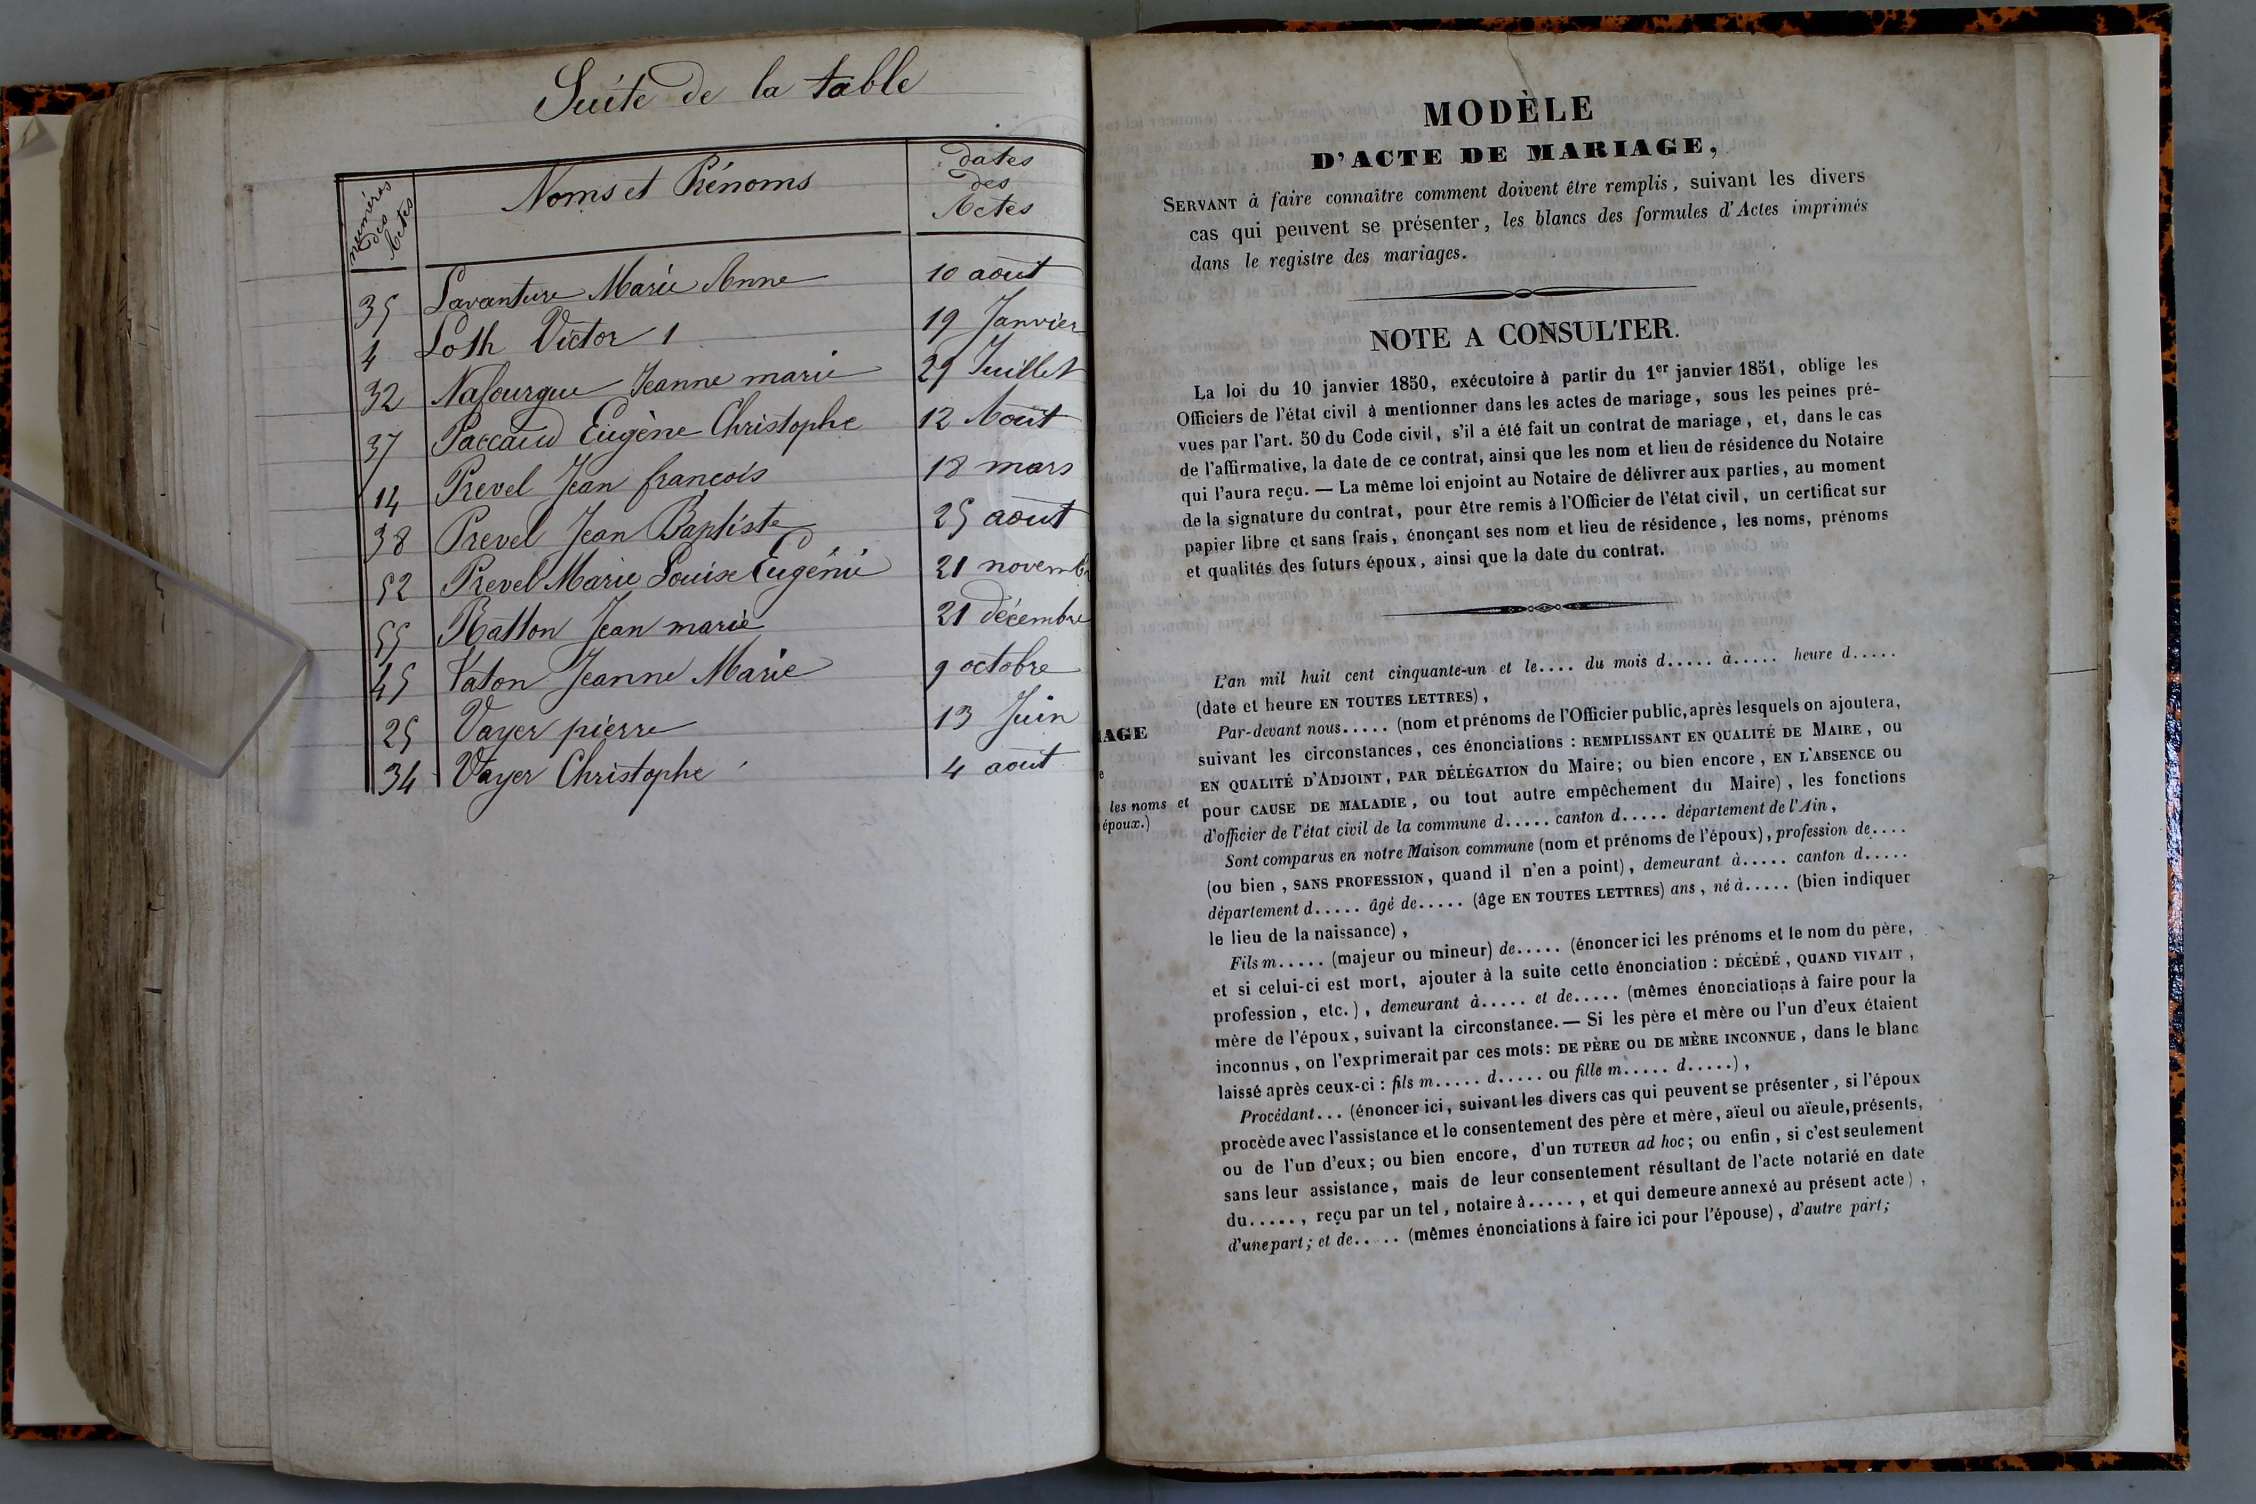 Suite de la table
numéros des Actes
Noms et Prénoms
dates des Actes
35 Lavanture Marie Anne 10 août
4 Loth Victor 1 19 Janvier
32 Nafourgue Jeanne marie 29 Juillet
37 Paccaud Eugène Christophe 12 Août
14 Prevel Jean françois 18 mars
38 Prevel Jean Baptiste 25 août
52 Prevel Marie Louise Eugénie 21 novembr
55 Ratton Jean marie 21 décembre
45 Vaton Jeanne Marie 9 octobre
25 Vayer pierre 13 Juin
34 Vayer Christophe 4 août
MODÈLE
D'ACTE DE MARIAGE,
SERVANT à faire connaître comment doivent être remplis, suivant les divers
cas qui peuvent se présenter, les blancs des formules d'Actes imprimés
dans le registre des mariages.
NOTE A CONSULTER.
La loi du 10 janvier 1850, exécutoire à partir du 1er janvier 1851, oblige les
Officiers de l'état civil à mentionner dans les actes de mariage, sous les peines pré-
vues par l'art. 50 du Code civil, s'il a été fait un contrat de mariage, et, dans le cas
de l'affirmative, la date de ce contrat, ainsi que les nom et lieu de résidence du Notaire
qui l'aura reçu. — La même loi enjoint au Notaire de délivrer aux parties, au moment
de la signature du contrat, pour être remis à l'Officier de l'état civil, un certificat sur
papier libre et sans frais, énonçant ses nom et lieu de résidence, les noms, prénoms
et qualités des futurs époux, ainsi que la date du contrat.
L'an mil huit cent cinquante-un et le.... du mois d..... à..... heure d.....
(date et heure EN TOUTES LETTRES),
Par-devant nous..... (nom et prénoms de l'Officier public, après lesquels on ajoutera,
suivant les circonstances, ces énonciations : REMPLISSANT EN QUALITÉ DE MAIRE, ou
EN QUALITÉ D'ADJOINT, PAR DÉLÉGATION du Maire; ou bien encore, EN L'ABSENCE ou
pour CAUSE DE MALADIE, ou tout autre empêchement du Maire), les fonctions
d'officier de l'état civil de la commune d..... canton d..... département de l'Ain,
Sont comparus en notre Maison commune (nom et prénoms de l'époux), profession de....
(ou bien, SANS PROFESSION, quand il n'en a point), demeurant à..... canton d.....
département d..... âgé de..... (âge EN TOUTES LETTRES) ans, né à..... (bien indiquer
le lieu de la naissance),
Fils m..... (majeur ou mineur) de..... (énoncer ici les prénoms et le nom du père,
et si celui-ci est mort, ajouter à la suite cette énonciation : DÉCÉDÉ, QUAND VIVAIT,
profession, etc.), demeurant à..... et de..... (mêmes énonciations à faire pour la
mère de l'époux, suivant la circonstance. — Si les père et mère ou l'un d'eux étaient
inconnus, on l'exprimerait par ces mots: DE PÈRE ou DE MÈRE INCONNUE, dans le blanc
laissé après ceux-ci : fils m..... d..... ou fille m..... d.....),
Procédant... (énoncer ici, suivant les divers cas qui peuvent se présenter, si l'époux
procède avec l'assistance et le consentement des père et mère, aïeul ou aïeule, présents,
ou de l'un d'eux; ou bien encore, d'un TUTEUR ad hoc; ou enfin, si c'est seulement
sans leur assistance, mais de leur consentement résultant de l'acte notarié en date
du....., reçu par un tel, notaire à....., et qui demeure annexé au présent acte),
d'une part; et de..... (mêmes énonciations à faire ici pour l'épouse), d'autre part;
IAGE
e
les noms et
époux.)